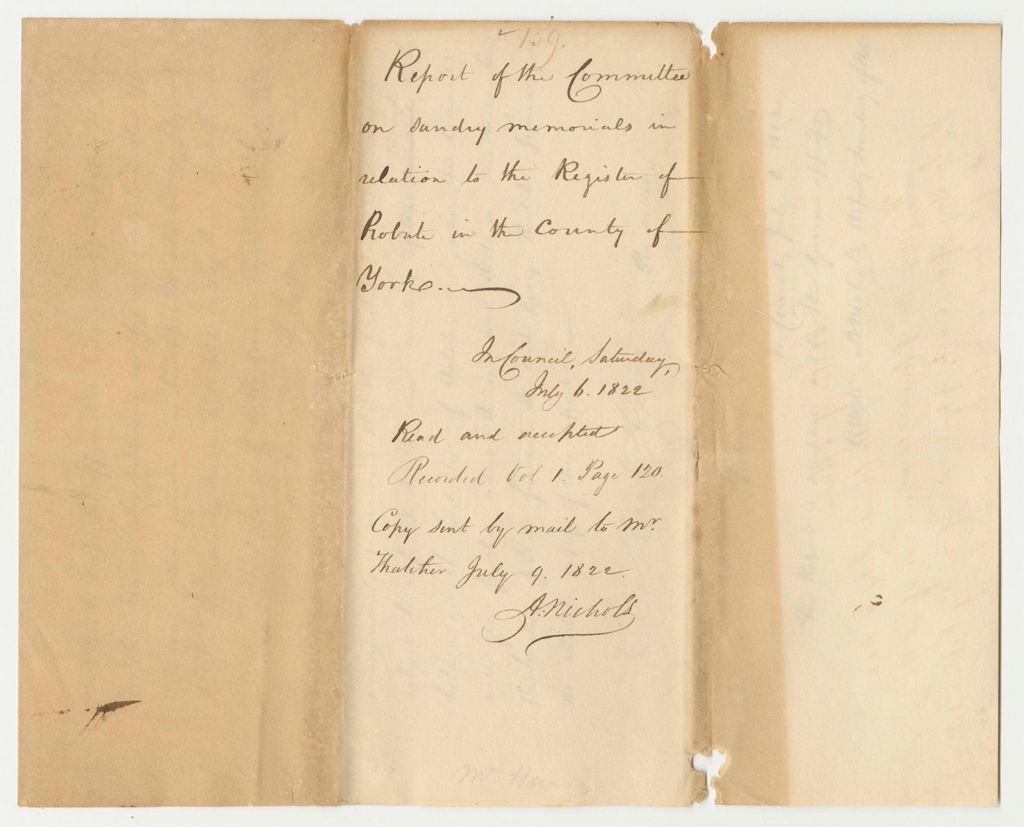 159.
Report of the Committee
on sundry memorials in
relation to the Register of
Probate in the County of
York.
In Council, Saturday,
July 6. 1822
Read and accepted
Recorded Vol 1. Page 120.
Copy sent by mail to Mr.
Thatcher July 9. 1822.
A. Nichols
Mr